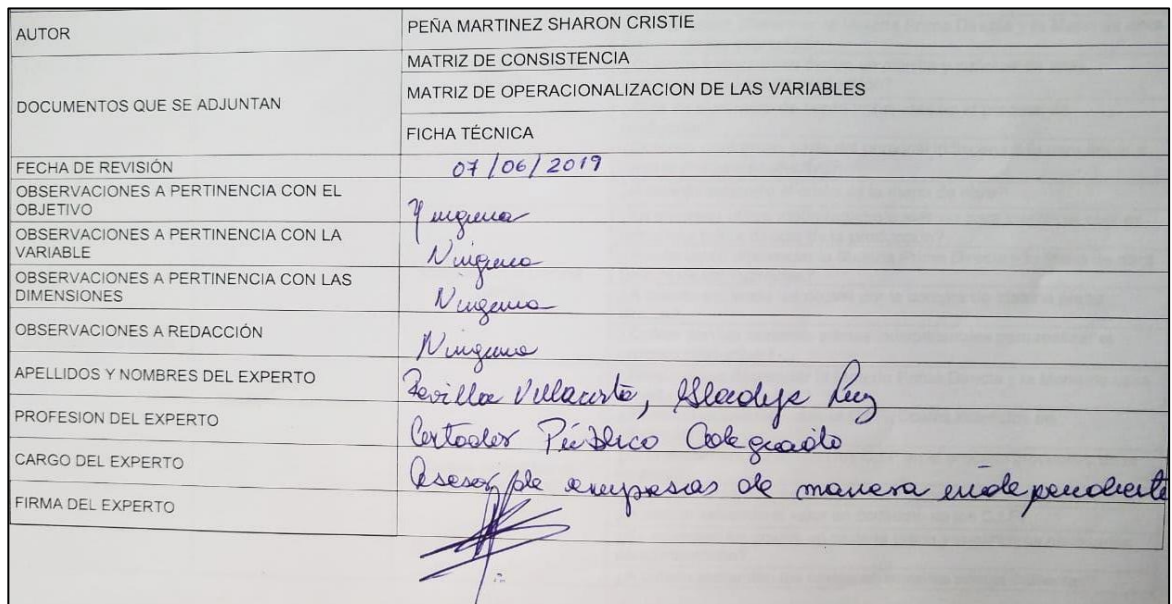 AUTOR
PEÑA MARTINEZ SHARON CRISTIE
DOCUMENTOS QUE SE ADJUNTAN
MATRIZ DE CONSISTENCIA
MATRIZ DE OPERACIONALIZACION DE LAS VARIABLES
FICHA TÉCNICA
FECHA DE REVISIÓN
07/06/2019
OBSERVACIONES A PERTINENCIA CON EL
OBJETIVO
Ninguna
OBSERVACIONES A PERTINENCIA CON LA
VARIABLE
Ninguna
OBSERVACIONES A PERTINENCIA CON LAS
DIMENSIONES
Ninguna
OBSERVACIONES A REDACCIÓN
Ninguna
APELLIDOS Y NOMBRES DEL EXPERTO
Luz
PROFESION DEL EXPERTO
Contador Público Colegiado
CARGO DEL EXPERTO
Asesor de empresas de manera independiente
FIRMA DEL EXPERTO